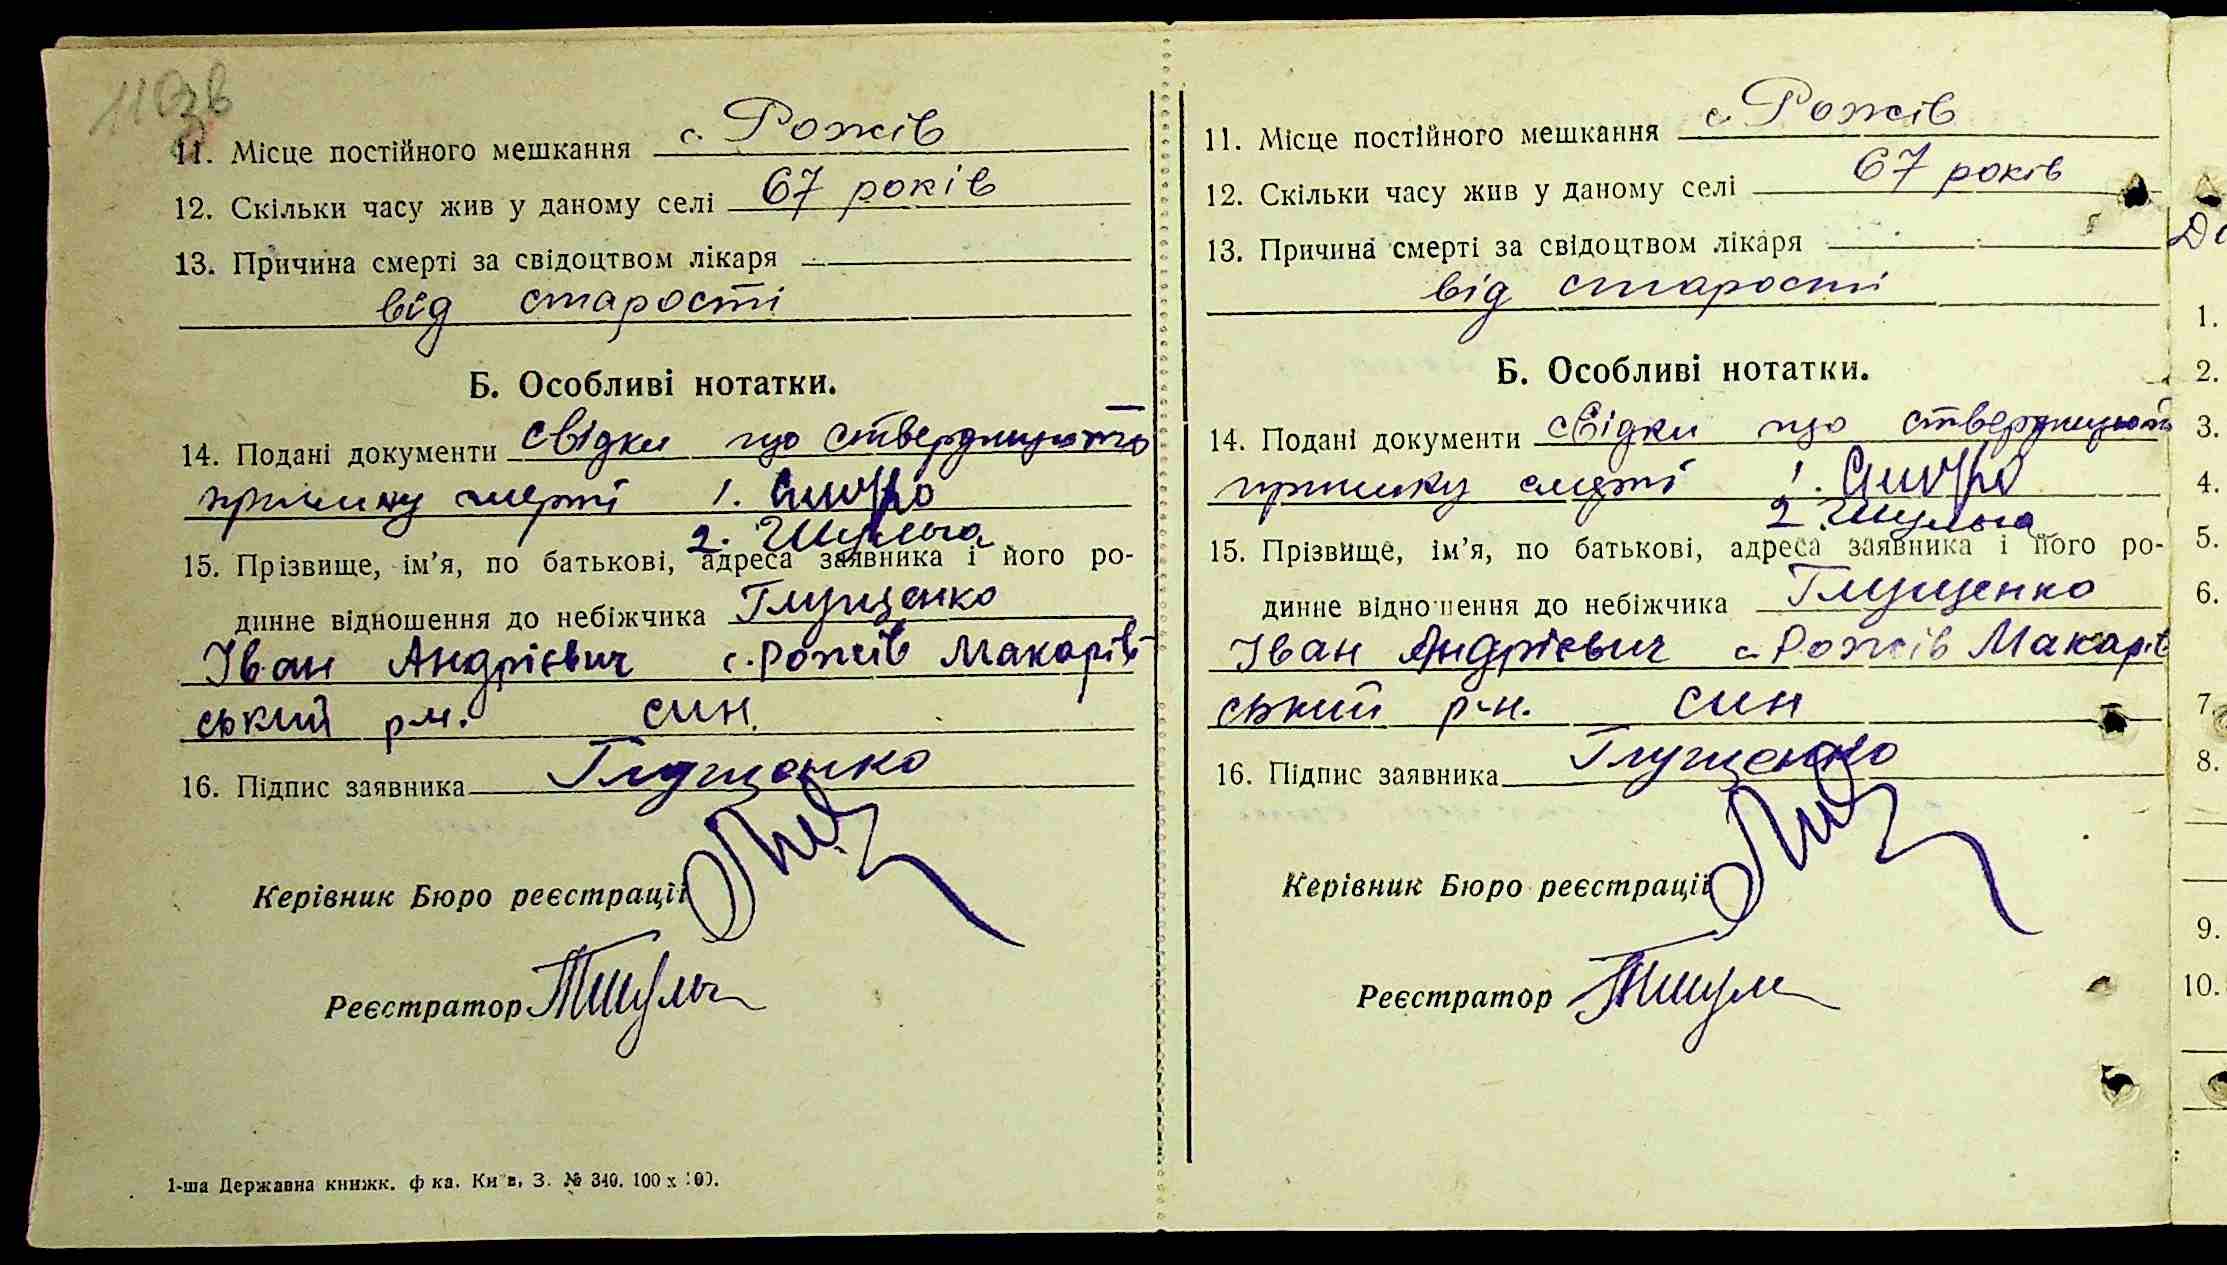 11. Місце постійного мешкання с. Рожів
12. Скільки часу жив у даному селі 67 років
13. Причина смерті за свідоцтвом лікаря
від старості
Б. Особливі нотатки.
14. Подані документи свідки що стверджують
причину смерті 1.
2. Шульга
15. Прізвище, ім'я, по батькові, адреса заявника і його ро-
динне відношення до небіжчика Глущенко
Іван Андрієвич с. Рожів Макарів-
ський р-н. син.
16. Підпис заявника Глущенко
Керівник Бюро реєстрації
Реєстратор
1-ша Державна книжк. ф ка. Київ, З. № 340. 100 х 100.
11. Місце постійного мешкання с. Рожів
12. Скільки часу жив у даному селі 67 років
13. Причина смерті за свідоцтвом лікаря
від старості
Б. Особливі нотатки.
14. Подані документи свідки що стверджують
причину смерті 1.
2. Шульга
15. Прізвище, ім'я, по батькові, адреса заявника і його ро-
динне відношення до небіжчика Глущенко
Іван Андрієвич с. Рожів Макарів
ський р-н. син
16. Підпис заявника Глущенко
Керівник Бюро реєстрації
Реєстратор
1.
2.
3.
4.
5.
6.
7.
8.
9.
10.